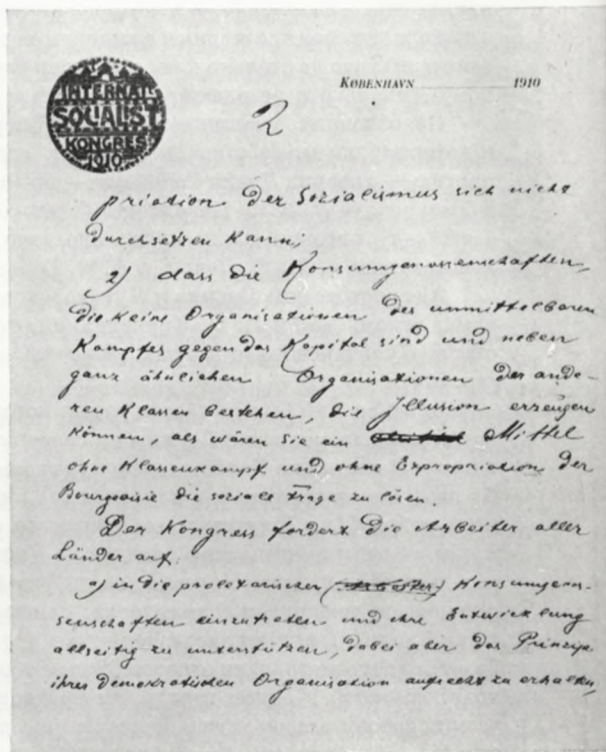 INTERNAT.
SOCIALIST
KONGRES
1910
KØBENHAVN 1910
2
priation der Sozialismus sich nicht
durchsetzen kann;
2) dass die Konsumgenossenschaften,
die keine Organisationen des unmittelbaren
Kampfes gegen das Kapital sind und neben
ganz ähnlichen Organisationen der ande-
ren Klassen bestehen, die Illusion erzeugen
können, als wären sie ein Mittel
ohne Klassenkampf und ohne Expropriation der
Bourgeoisie die soziale Frage zu lösen.
Der Kongress fordert die Arbeiter aller
Länder auf:
a) in die proletarischen (Arbeiter) Konsumgenos-
senschaften einzutreten und ihre Entwicklung
allseitig zu unterstützen, dabei aber das Prinzip
ihrer demokratischen Organisation aufrecht zu erhalten,